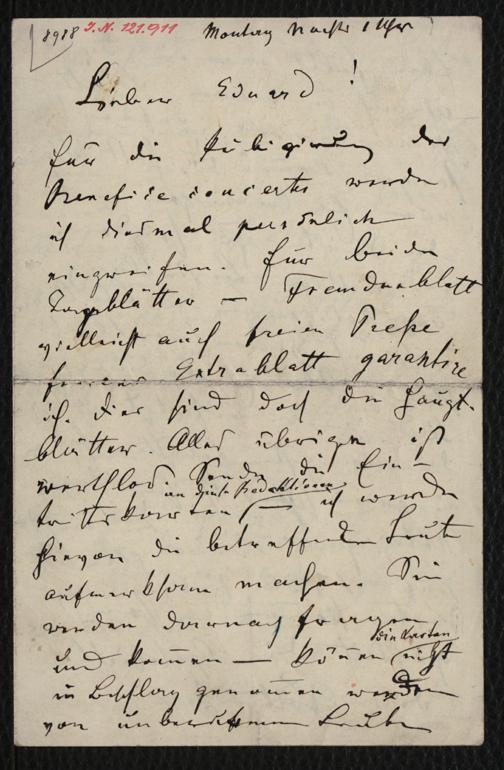 8988 I.N. 121.911 Montag Nachts 1 Uhr
Lieber Eduard!
für die der
Beneficeconcerte werde
ich diesmal persönlich
eingreifen. Für beide
Tagblätter — Fremdenblatt
vielleicht auch freien Preße
ferner Extrablatt garantire
ich. Dies sind doch die Haupt-
blätter. Alles übrige ist
werthlos. Sende die Ein-
an diese Redaktionen
trittskarten — ich werde
hievon die betreffenden Leute
aufmerksam machen. Sie
werden darnach fragen
die Karten
und kom̄en — kön̄en nicht
in Beschlag genom̄en werden
von unberufenen Leuten